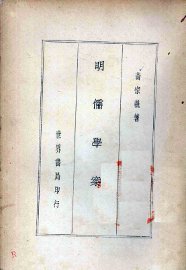 黃宗羲著
明儒學案
世界書局印行